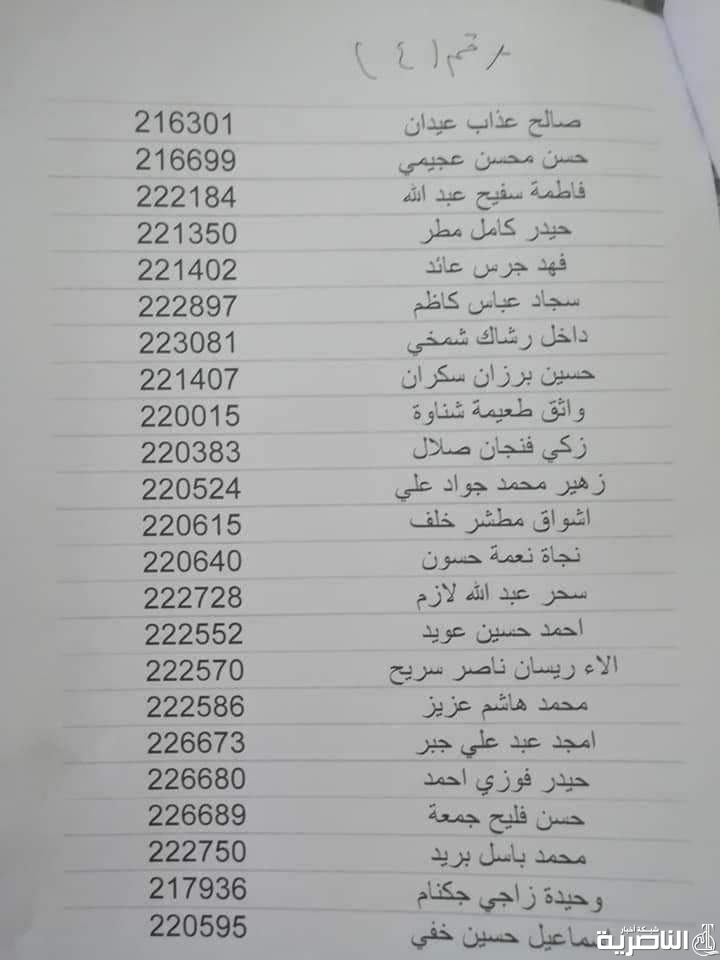 رقم (٤)
صالح عذاب عيدان 216301
حسن محسن عجيمي 216699
فاطمة سفيح عبد الله 222184
حيدر كامل مطر 221350
فهد جرس عائد 221402
سجاد عباس كاظم 222897
داخل رشاك شمخي 223081
حسين برزان سكران 221407
واثق طعيمة شناوة 220015
زكي فنجان صلال 220383
زهير محمد جواد علي 220524
اشواق مطشر خلف 220615
نجاة نعمة حسون 220640
سحر عبد الله لازم 222728
احمد حسين عويد 222552
الاء ريسان ناصر سريح 222570
محمد هاشم عزيز 222586
امجد عبد علي جبر 226673
حيدر فوزي احمد 226680
حسن فليح جمعة 226689
محمد باسل بريد 222750
وحيدة زاجي جكنام 217936
سماعيل حسين خفي 220595
شبكة أخبار
الناصرية